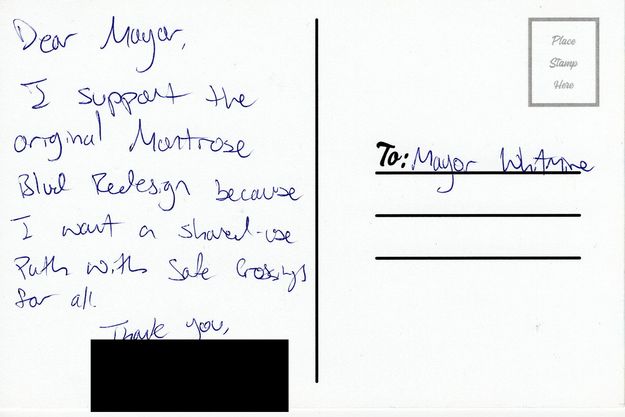 Dear Mayor,
I support the
original Montrose
Blvd Redesign because
I want a shared-use
Path with Safe Crossings
for all.
Thank you,
Place
Stamp
Here
To: Mayor Whitmire